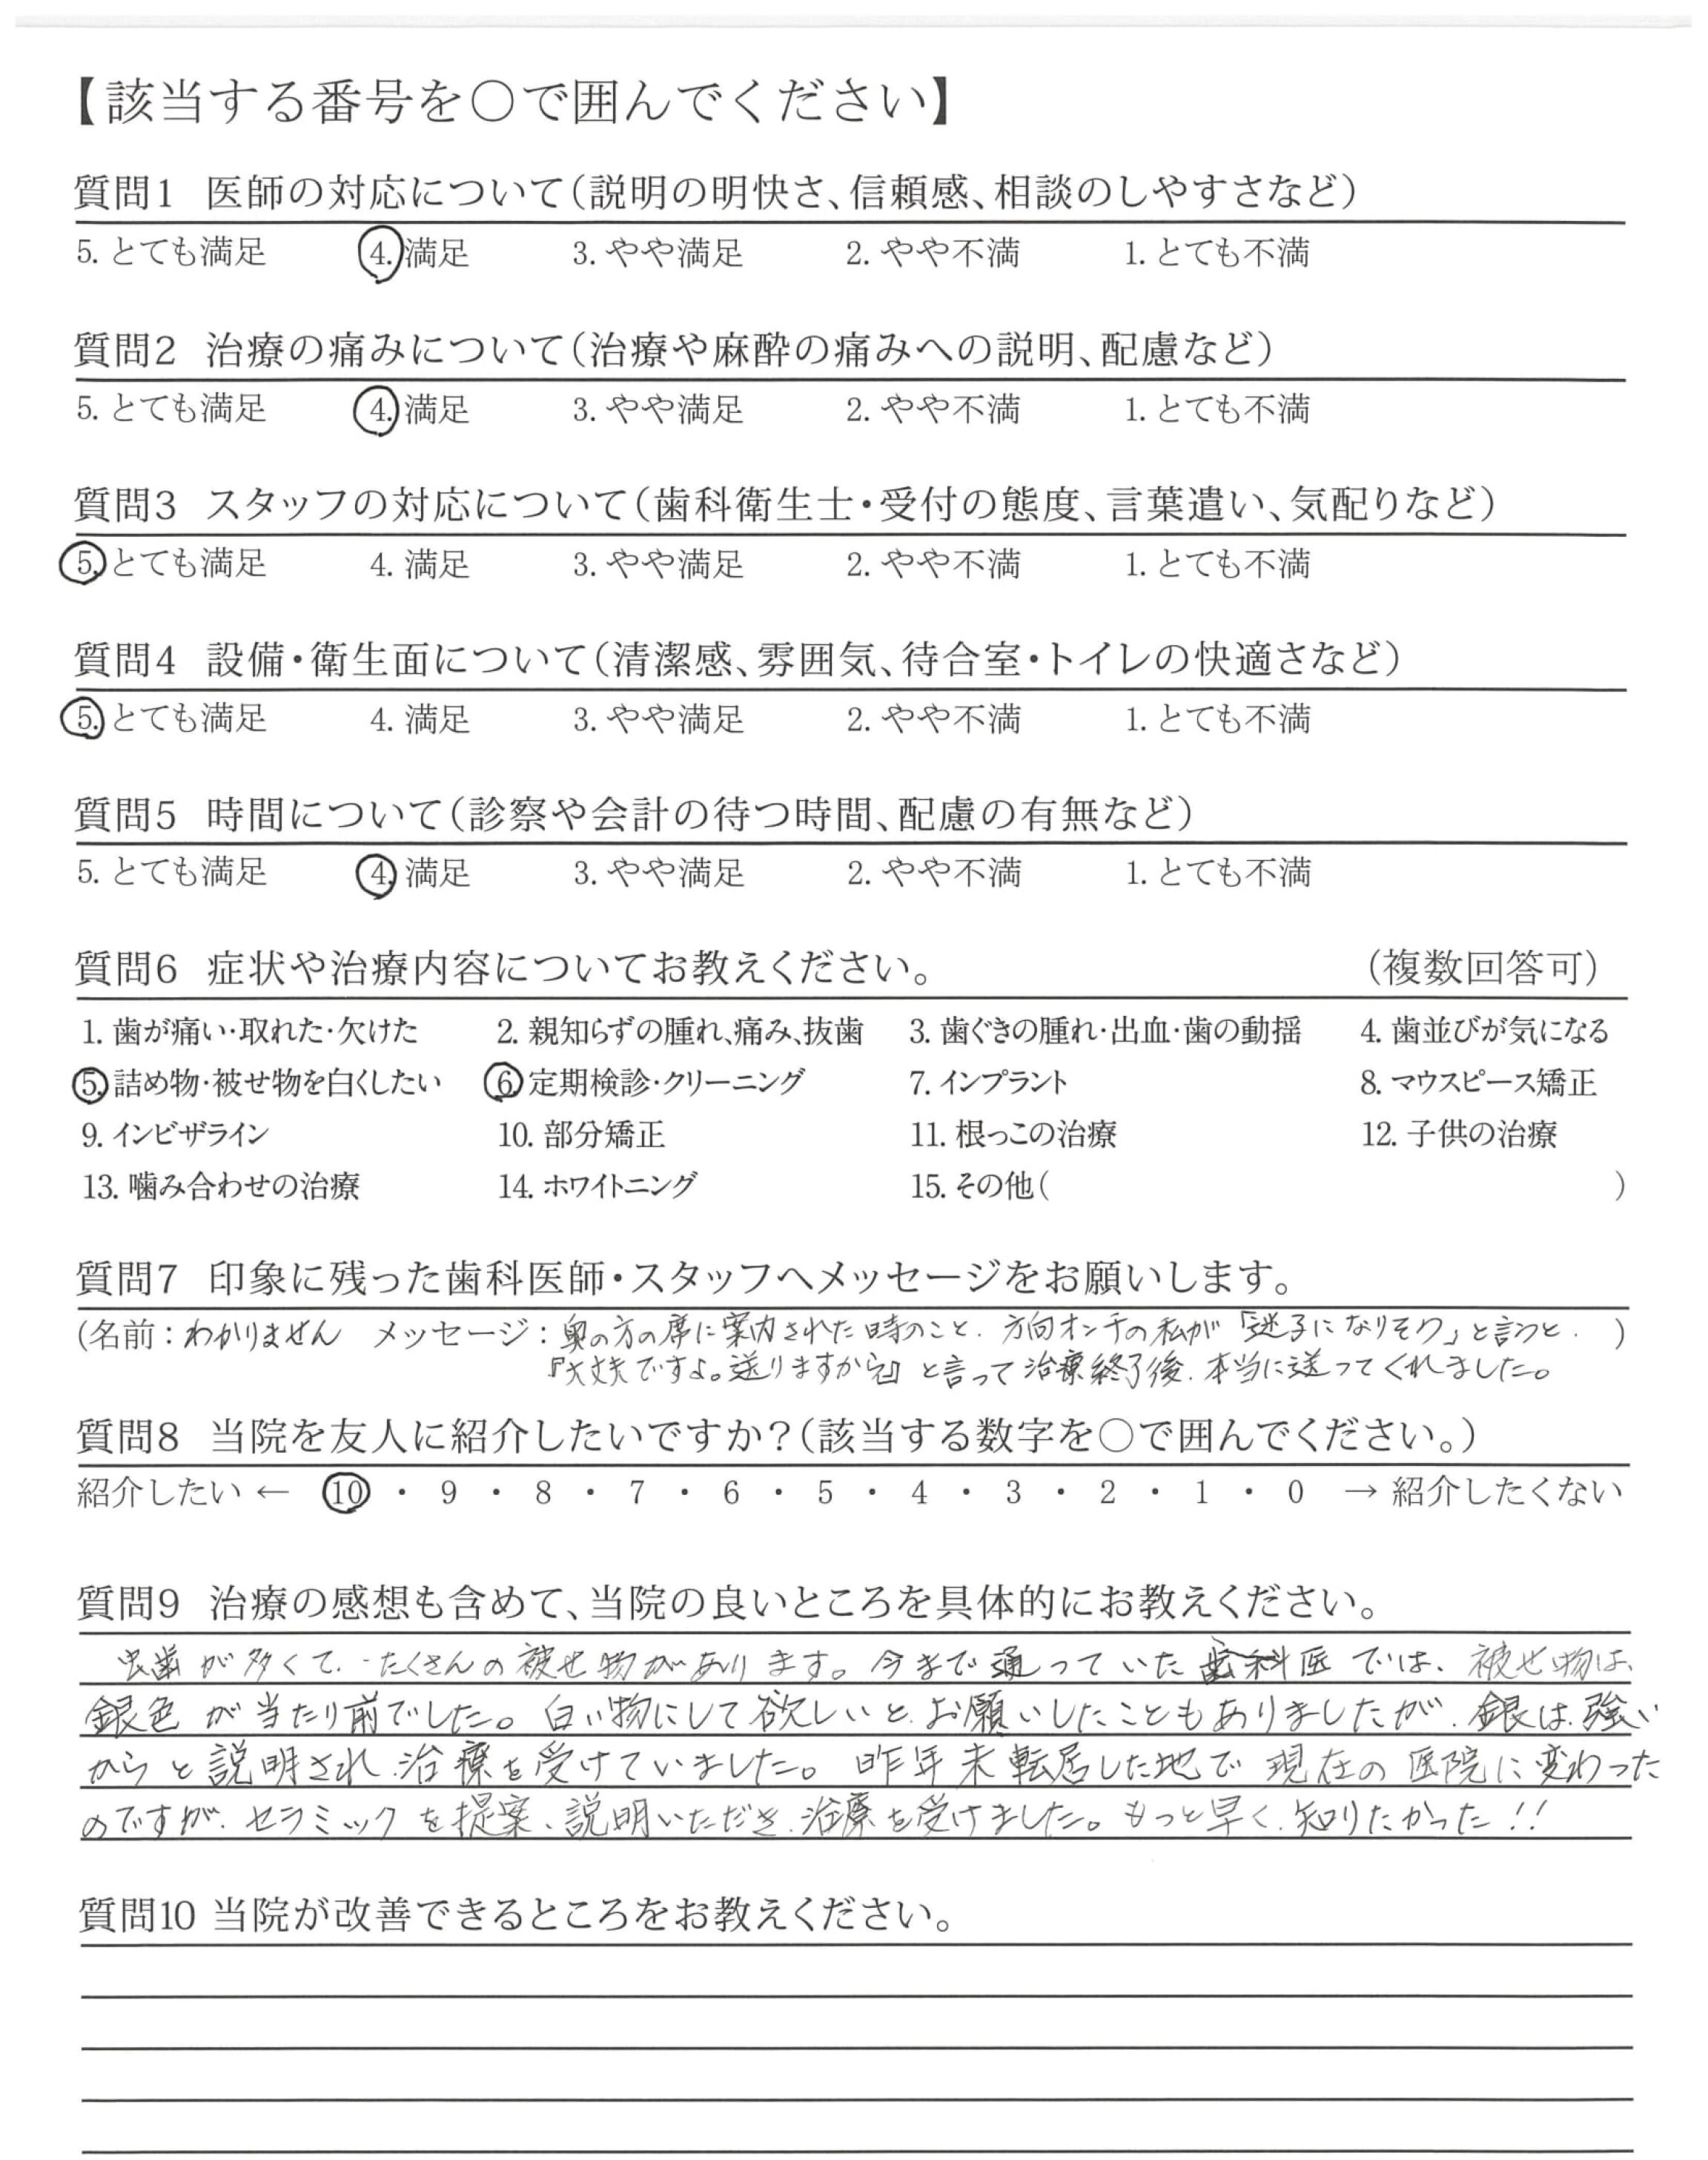 【該当する番号を〇で囲んでください】
質問1 医師の対応について（説明の明快さ、信頼感、相談のしやすさなど）
5. とても満足 4. 満足 3. やや満足 2. やや不満 1. とても不満
質問2 治療の痛みについて（治療や麻酔の痛みへの説明、配慮など）
5. とても満足 4. 満足 3. やや満足 2. やや不満 1. とても不満
質問3 スタッフの対応について（歯科衛生士・受付の態度、言葉遣い、気配りなど）
5. とても満足 4. 満足 3. やや満足 2. やや不満 1. とても不満
質問4 設備・衛生面について（清潔感、雰囲気、待合室・トイレの快適さなど）
5. とても満足 4. 満足 3. やや満足 2. やや不満 1. とても不満
質問5 時間について（診察や会計の待つ時間、配慮の有無など）
5. とても満足 4. 満足 3. やや満足 2. やや不満 1. とても不満
質問6 症状や治療内容についてお教えください。 （複数回答可）
1. 歯が痛い・取れた・欠けた 2. 親知らずの腫れ、痛み、抜歯 3. 歯ぐきの腫れ・出血・歯の動揺 4. 歯並びが気になる
5. 詰め物・被せ物を白くしたい 6. 定期検診・クリーニング 7. インプラント 8. マウスピース矯正
9. インビザライン 10. 部分矯正 11. 根っこの治療 12. 子供の治療
13. 噛み合わせの治療 14. ホワイトニング 15. その他（ ）
質問7 印象に残った歯科医師・スタッフへメッセージをお願いします。
（名前：わかりません メッセージ：奥の方の席に案内された時のこと、方向オンチの私が「迷子になりそう」と言うと、 ）
『大丈夫ですよ。送りますから』と言って治療終了後、本当に送ってくれました。
質問8 当院を友人に紹介したいですか？（該当する数字を〇で囲んでください。）
紹介したい ← 10 ・ 9 ・ 8 ・ 7 ・ 6 ・ 5 ・ 4 ・ 3 ・ 2 ・ 1 ・ 0 → 紹介したくない
質問9 治療の感想も含めて、当院の良いところを具体的にお教えください。
虫歯が多くて、たくさんの被せ物があります。今まで通っていた歯科医では、被せ物は、
銀色が当たり前でした。白い物にして欲しいと、お願いしたこともありましたが、銀は、強い
からと説明され、治療を受けていました。昨年末転居した地で現在の医院に変わった
のですが、セラミックを提案、説明いただき、治療を受けました。もっと早く、知りたかった！！
質問10 当院が改善できるところをお教えください。